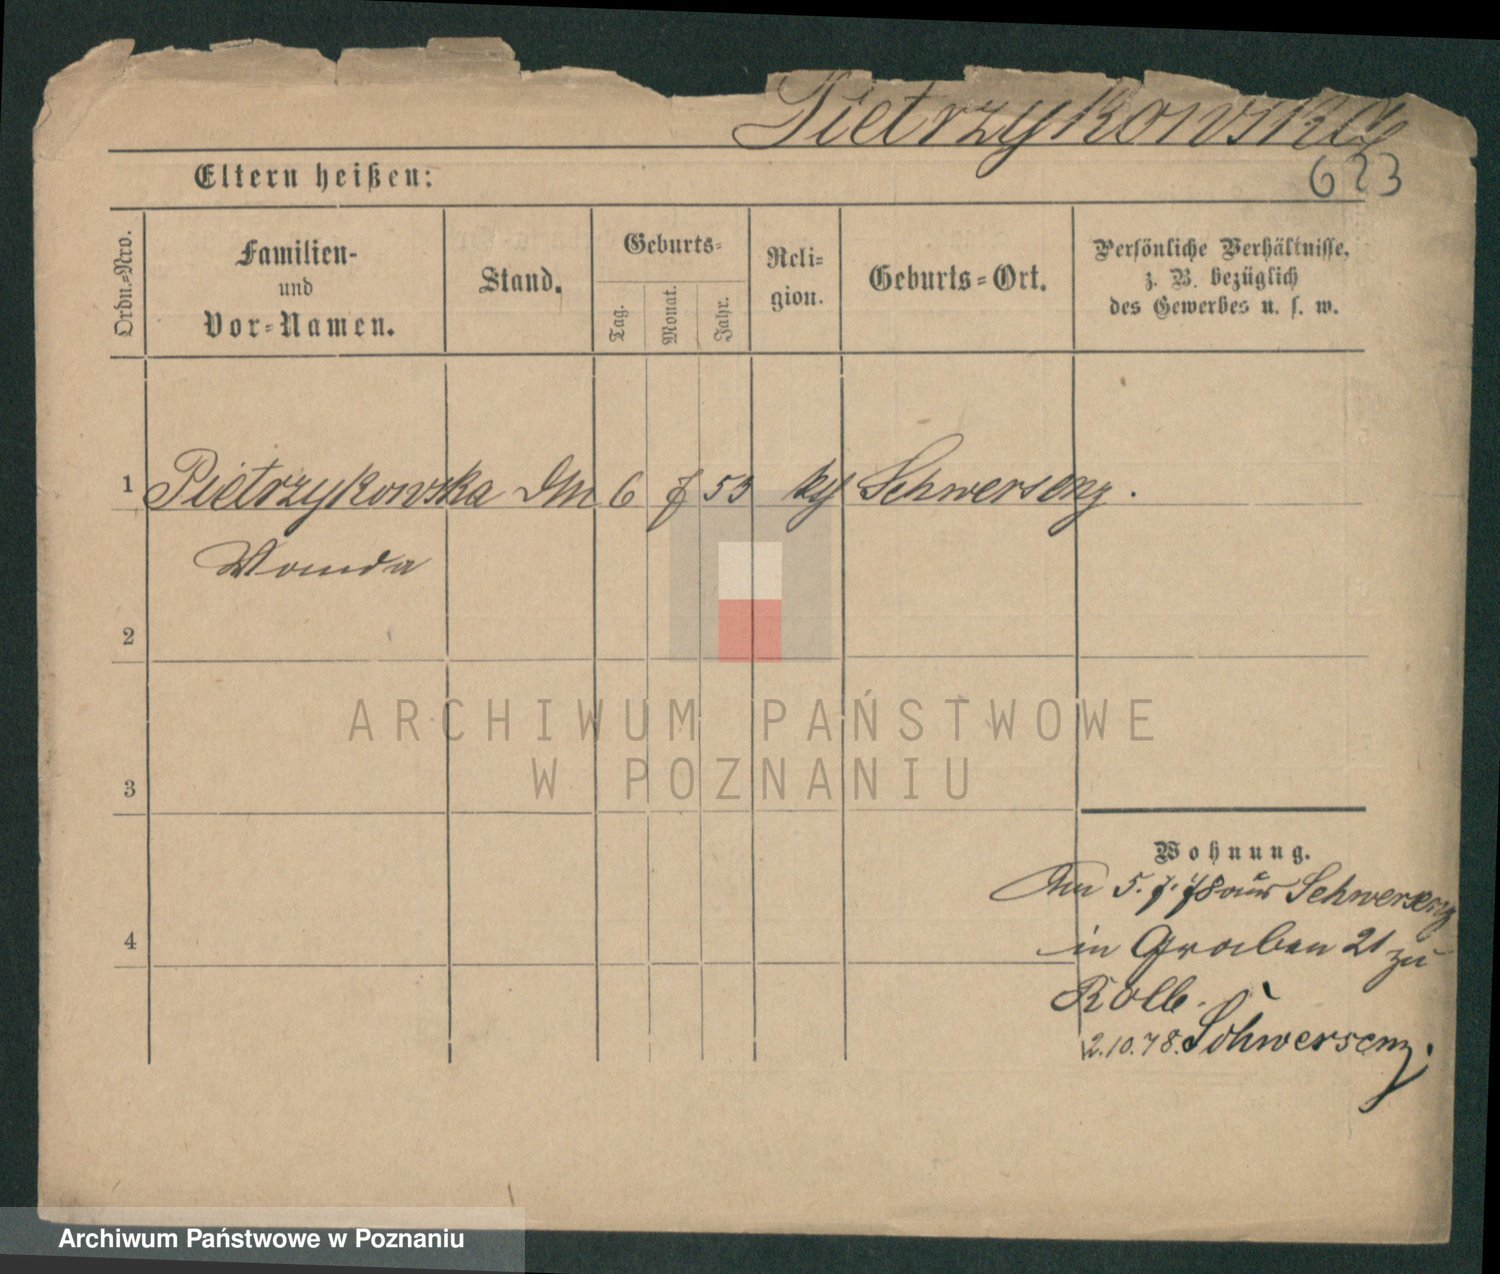 Pietrzykowska
623
Eltern heißen:
Ordn.-Nro.
Familien-
und
Vor-Namen.
Stand.
Geburts-
Tag.
Monat.
Jahr.
Reli-
gion.
Geburts-Ort.
Persönliche Verhältnisse,
z. B. bezüglich
des Gewerbes u. s. w.
1 Pietrzykowska 6 7 53 Schwersenz.
Wanda
2
3
4
ARCHIWUM PAŃSTWOWE
W POZNANIU
Wohnung.
5.7.78 aus Schwersenz
in Graben 21 zu
Kolb.
2.10.78. Schwersenz.
Archiwum Państwowe w Poznaniu